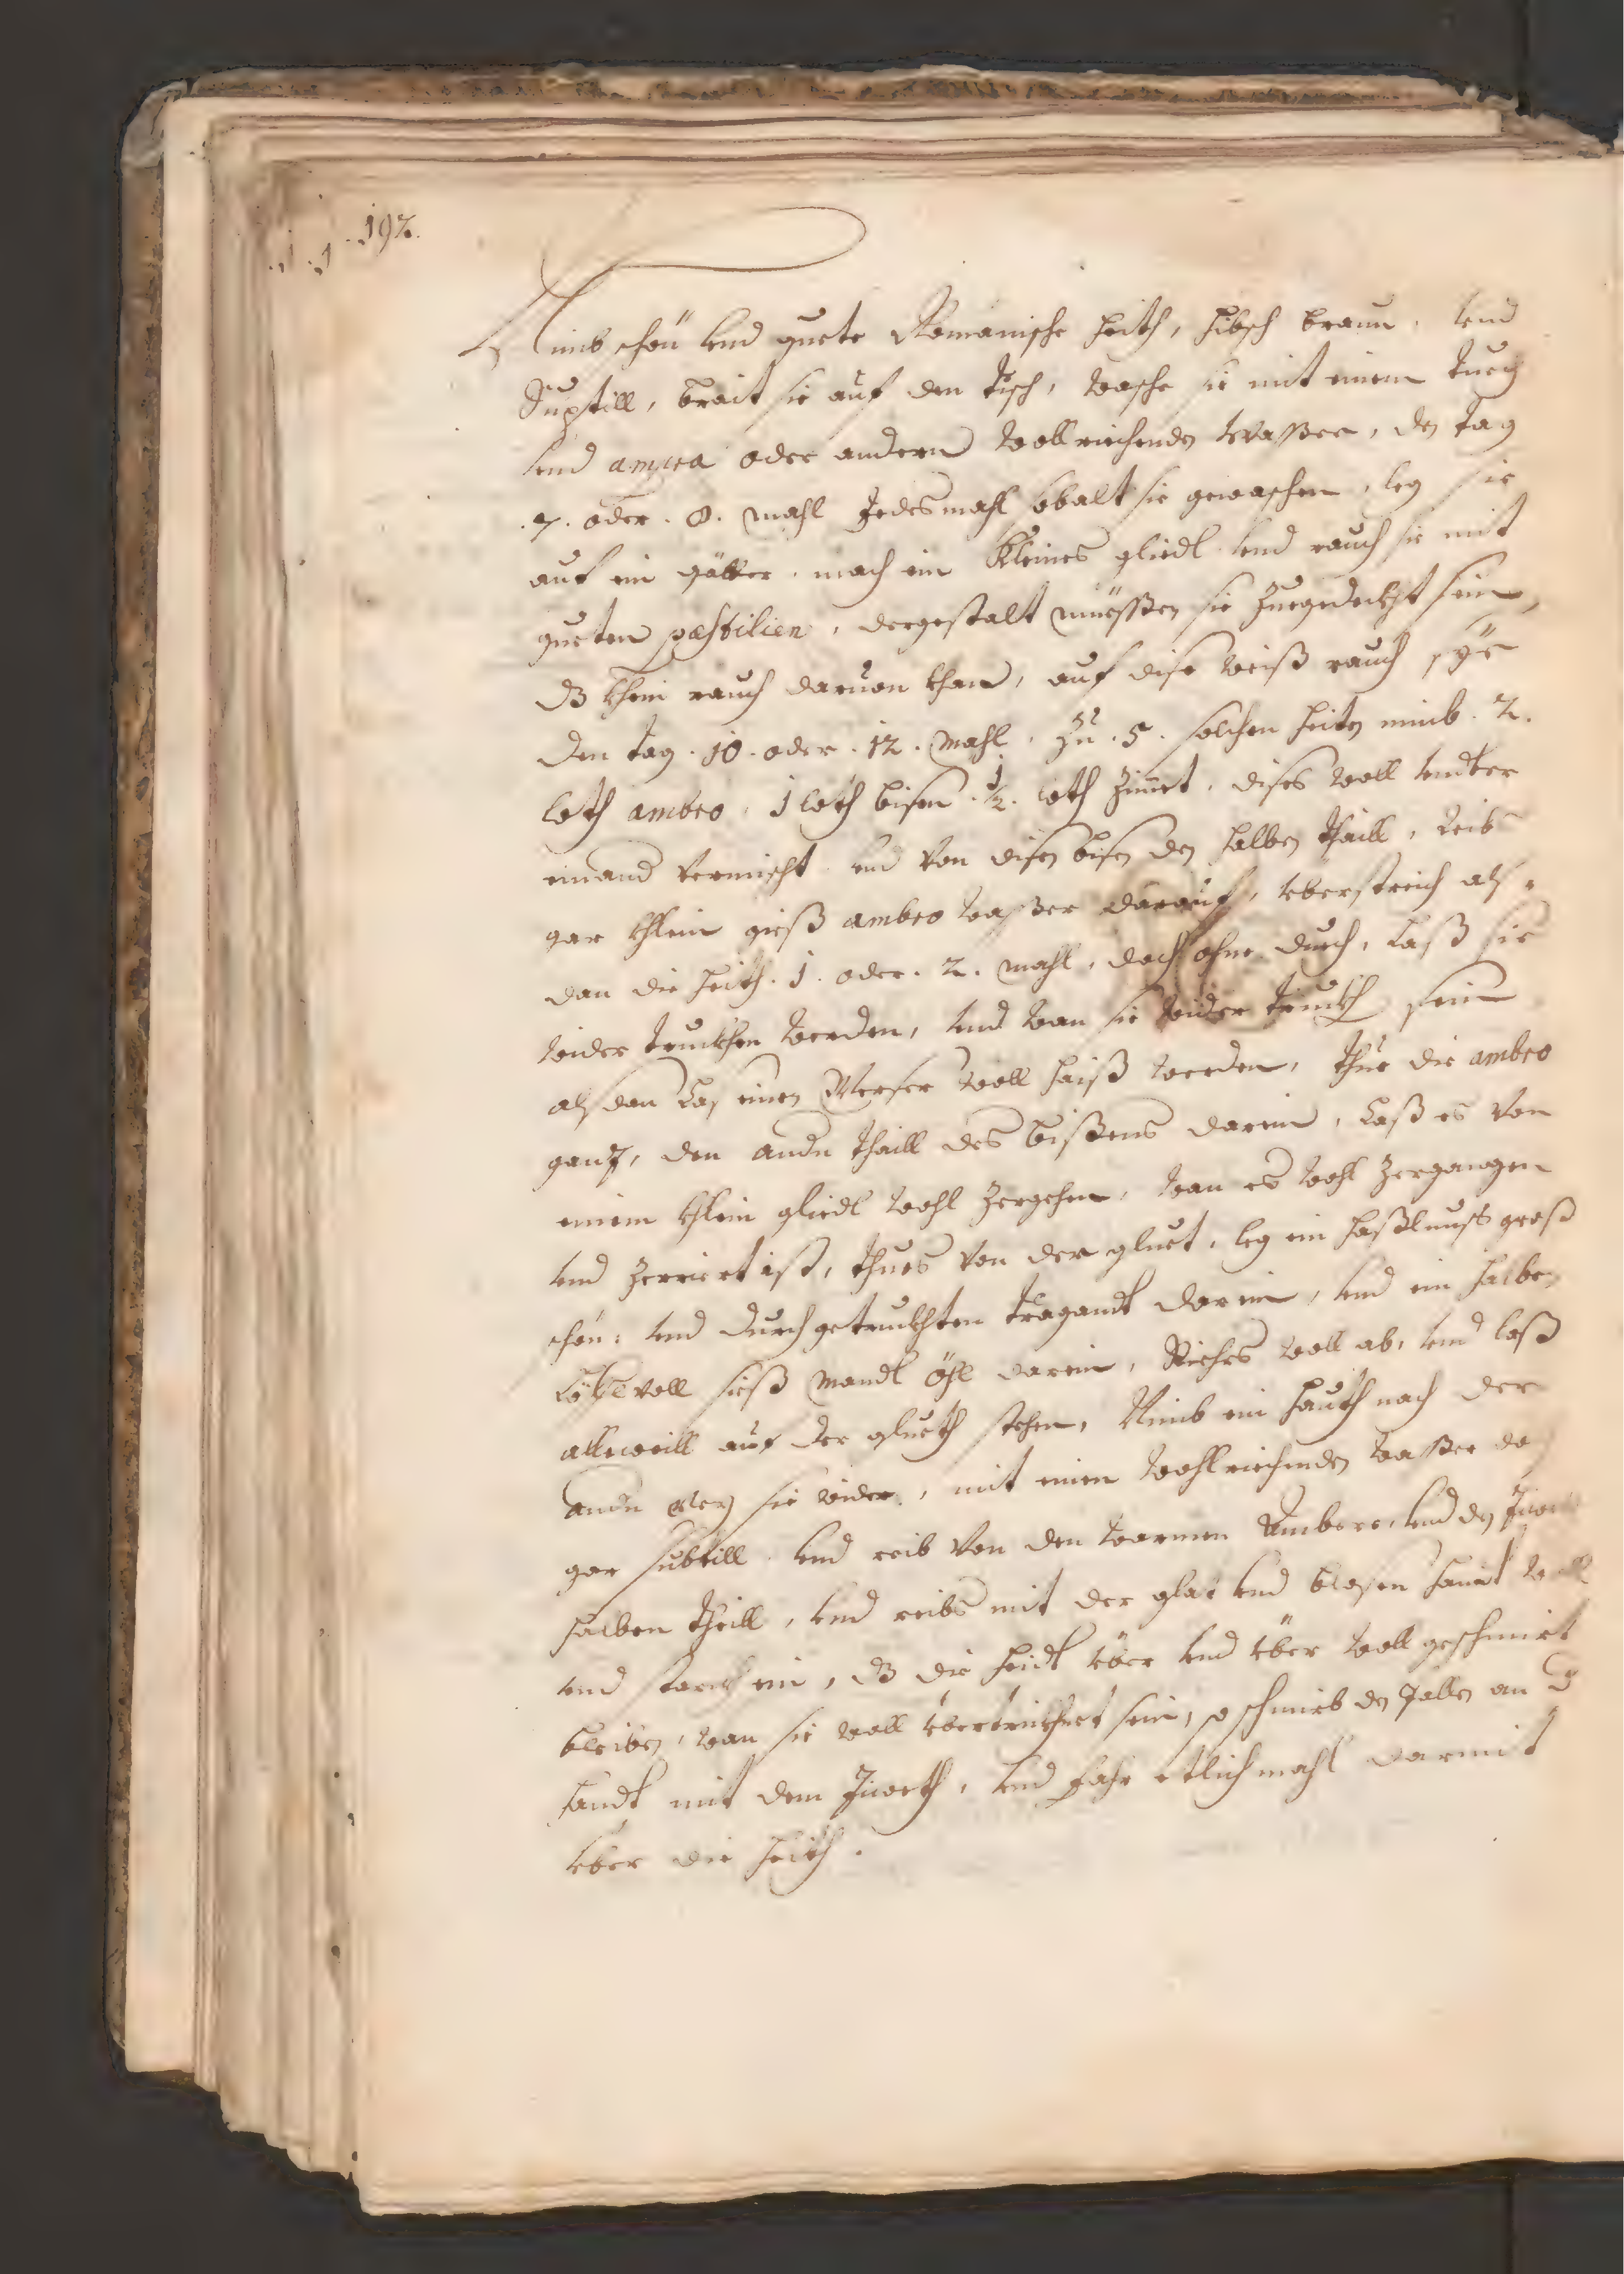 .192.
Nimb schön vnd guete Romanische heith, hibsch braun, vnd
Suptill, brait sie auf den tisch, wasche sie mit einem tuech
vnd oder andern wollriechendn wasser, dn tag
.7. oder .8. mahl Jedesmahl sobalt sie gewaschen, leg sie
auf ein gätter, mach ein Kleines gliedl vnd rauch sie mit
gueten passtilien, dergestalt müessen sie zuegedekht sein,
dz khein rauch daruon khan, auf dise weiß rauch sye
den tag .10. oder .12. mahl, zu .5. solchen heitn nimb .2.
loth ambro, 1 loth bisem .½. loth Zimet, dises woll vndter
einand vermischt vnd von disen bisn den halben thaill, reib
gar khlein gieß ambro wasser darauf, vberstreich als
dan die heith .1. oder .2. mahl, doch ohne durch, Laß sie
wider trukhen werden, vnd wan sie wider trukh sein
alsdan Las einen Merser woll haiß werden, thue die ambro
ganz, den andn thaill des bißems darein, Laß es von
einem khlein gliedl wohl zergehen, wan es wohl zergangen
vnd zerriert ist, thues von der gluet, leg ein haßlnuss groß
schön vnd durchgetrukhten tragandt darein, vnd ein halben
Löfflvoll sieß mandl öhl darein, Riehrs woll ab, vnd laß
alleweill auf der glueth stehen, Nimb ein hauth nach der
andn sie wider, mit einem wohlriechenden wasser
gar subtill vnd reib von den warmen Ambero, vnd dn
halben theill, vnd reibs mit der vnd blosen handt woll
vnd starkh ein, dz die heidt vber vnd vber woll geschmirt
bleiben, wan sie woll vbertrukhnet sein, so schmirb dn an d
handt mit dem, vnd fahr etlich mahl darmit
vber die heith.